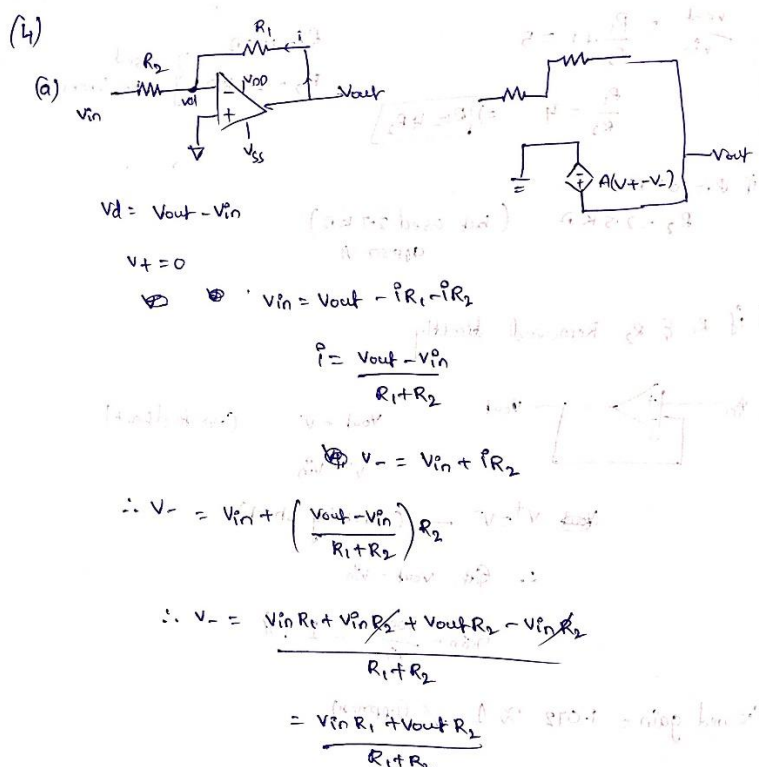 (4)
(a)
R1
i
R2
Vin
vd
-
+
VDD
VSS
Vout
A(V+-V-)
- +
Vout
Vd = Vout - Vin
V+ = 0
Vin = Vout - iR1 - iR2
i = Vout - Vin
R1+R2
V- = Vin + iR2
∴ V- = Vin + ( Vout - Vin
R1+R2 ) R2
∴ V- = VinR1 + VinR2 + VoutR2 - VinR2
R1+R2
= VinR1 + VoutR2
R1+R2